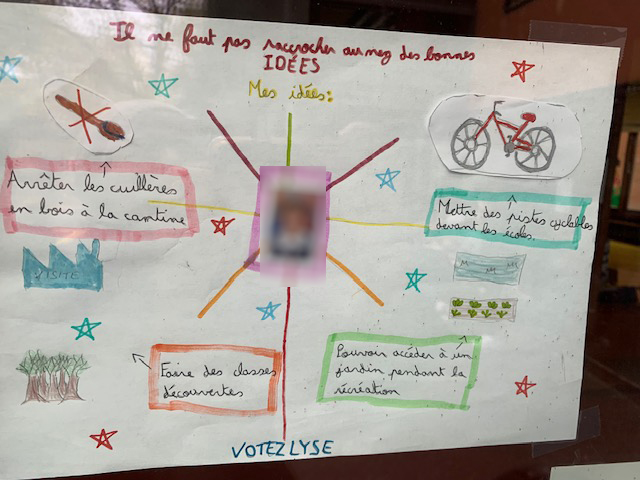 Il ne faut pas raccrocher au nez des bonnes
IDÉES
Mes idées:
Arrêter les cuillères
en bois à la cantine
Mettre des pistes cyclables
devant les écoles.
USINE
Faire des classes
découvertes
Pouvoir accéder à un
jardin pendant la
récréation
VOTEZ LYSE